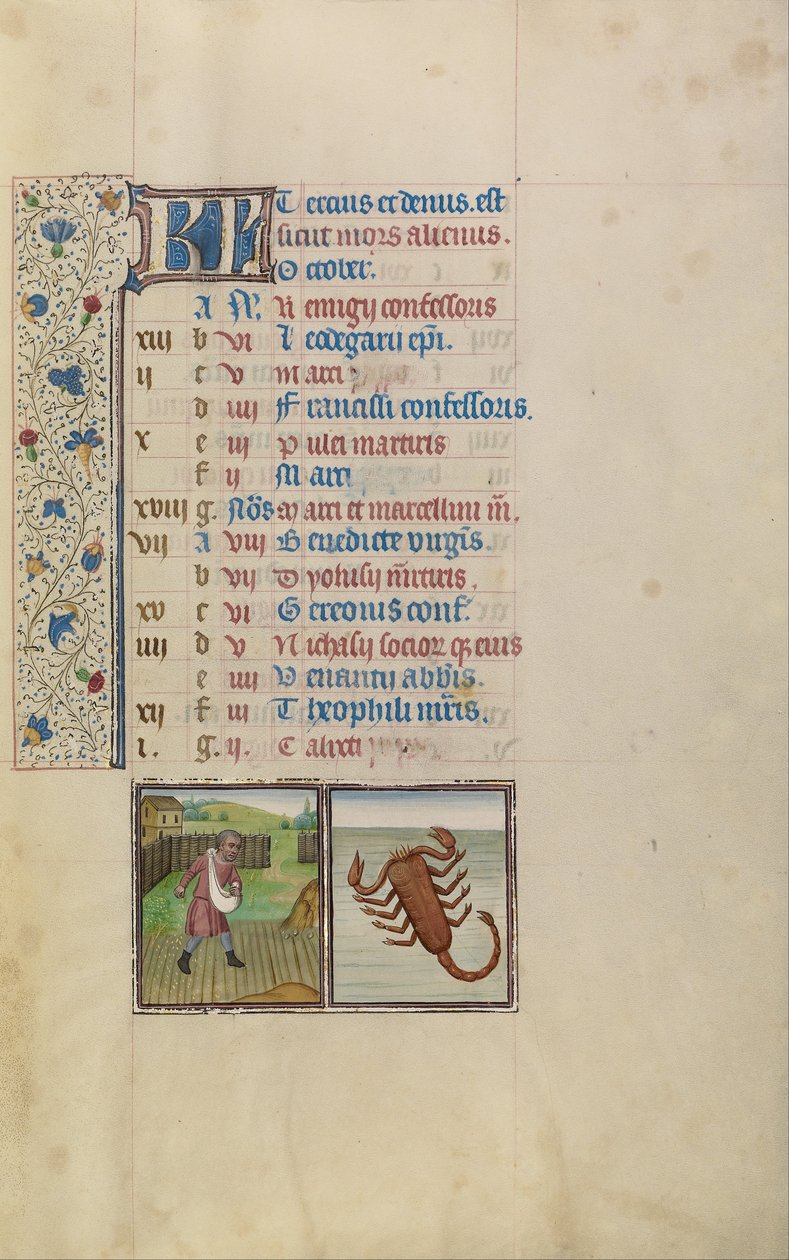 KL Tercius et denus. est
sicut mors alienus.
October.
A N. Remigij confessoris
xiii b vi Leodegarii epi.
ij c v Marci
d iiij Francissi confessoris.
x e iij Pulci martiris
f ij Marci
xviij g. Nōs Marci et marcellini m̄.
vij A viij Benedicte virgīs.
b vij Dyonisij m̄rtiris.
xv c vi Gereonis conf.
iiij d v Nichasij socior qz eius
e iiij Venantij abb̄is.
xij f iij Theophili mr̄is.
i. g. ij. Calixti